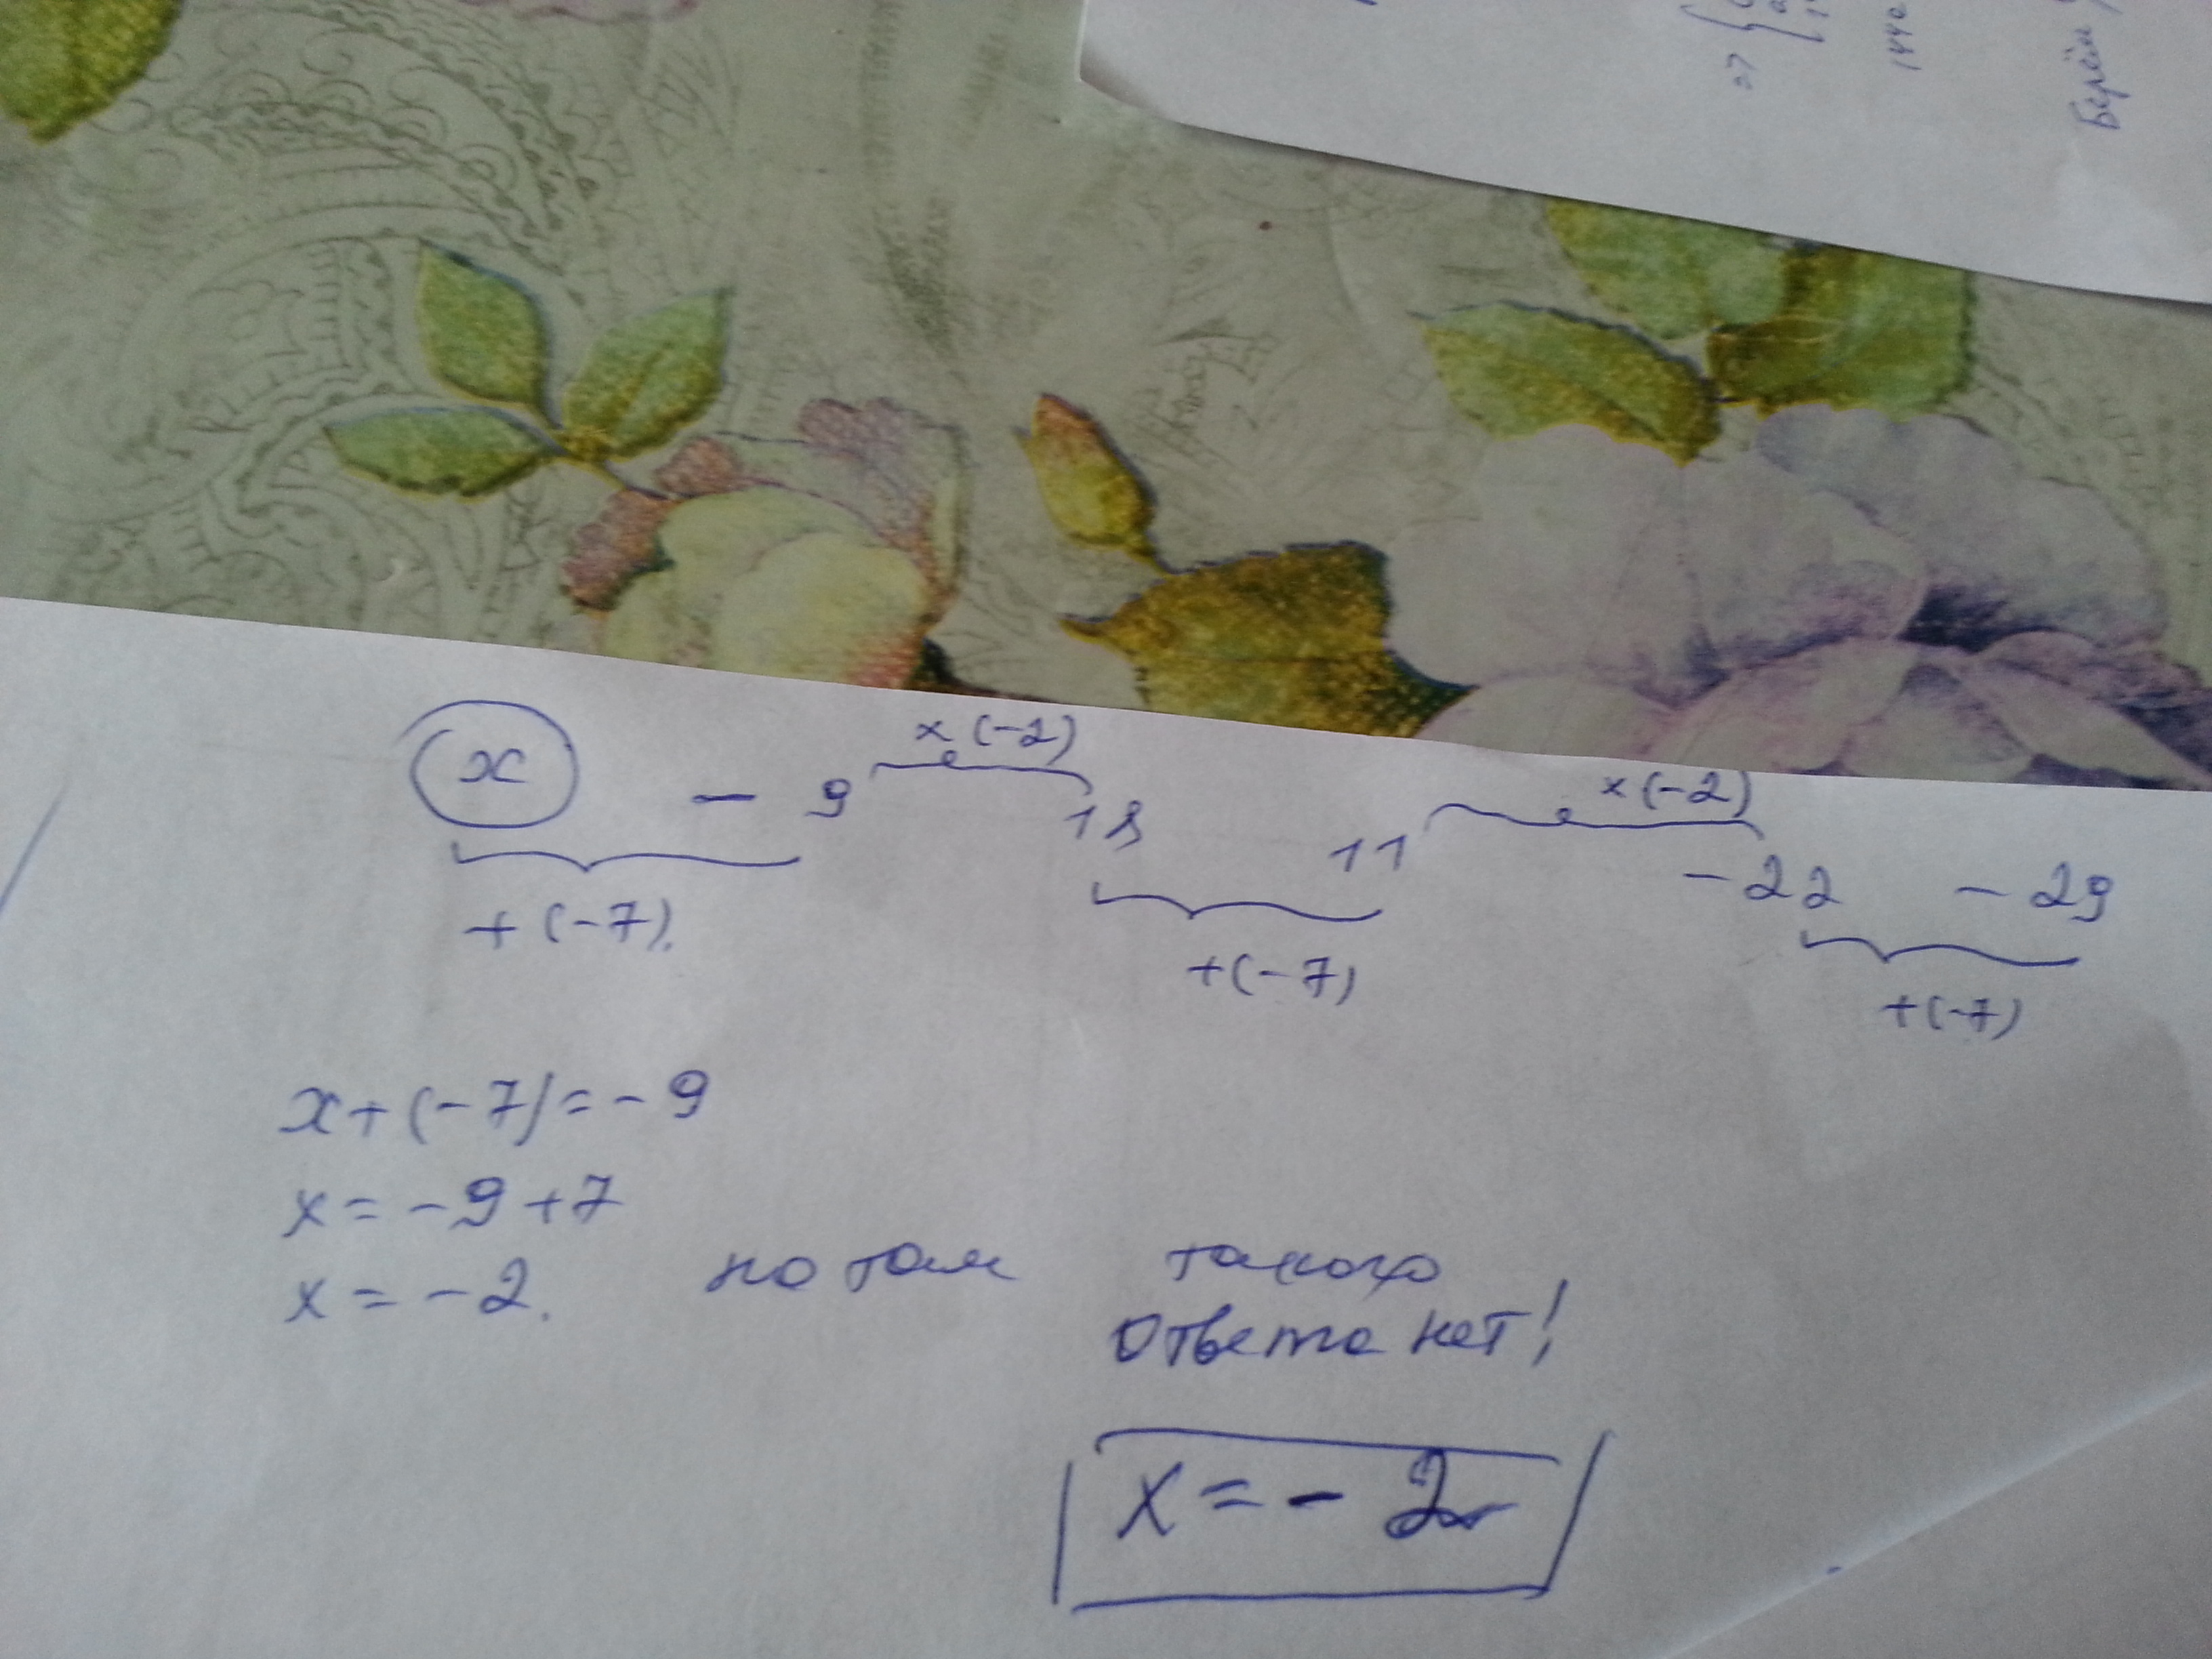 x - 9 18 11 - 22 - 29
x (-2) x (-2)
+ (-7). + (-7) + (-7)
x + (-7) = - 9
x = - 9 + 7
x = - 2. но там такого
ответа нет!
x = - 2
=> {
144
Берём